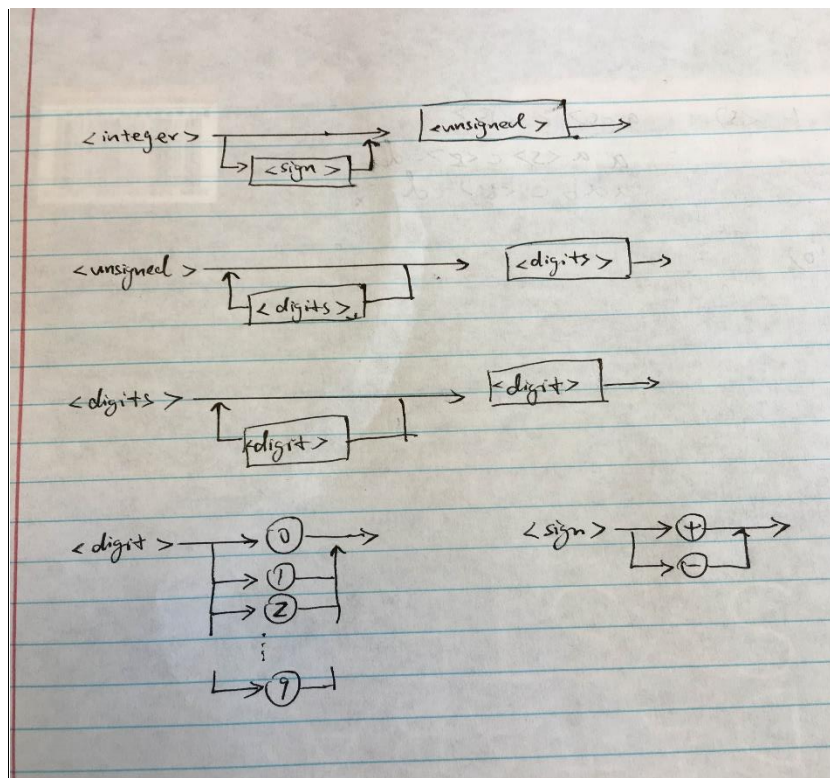 <integer> <unsigned>
<sign>
<unsigned> <digits>
<digits>
<digits> <digit>
<digit>
<digit> 0 <sign> +
1 -
2
9